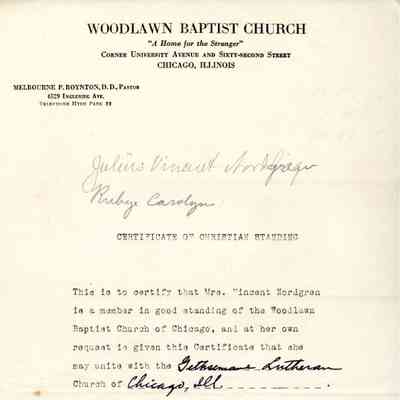 WOODLAWN BAPTIST CHURCH
"A Home for the Stranger"
CORNER UNIVERSITY AVENUE AND SIXTY-SECOND STREET
CHICAGO, ILLINOIS
MELBOURNE P. BOYNTON, D.D., PASTOR
6329 INGLESIDE AVE.
TELEPHONE HYDE PARK 92
Julius Vincent Nordgren
Rubye Carolyn
CERTIFICATE OF CHRISTIAN STANDING
This is to certify that Mrs. Vincent Nordgren
is a member in good standing of the Woodlawn
Baptist Church of Chicago, and at her own
request is given this Certificate that she
may unite with the Gethsemane Lutheran
Church of Chicago, Ill.